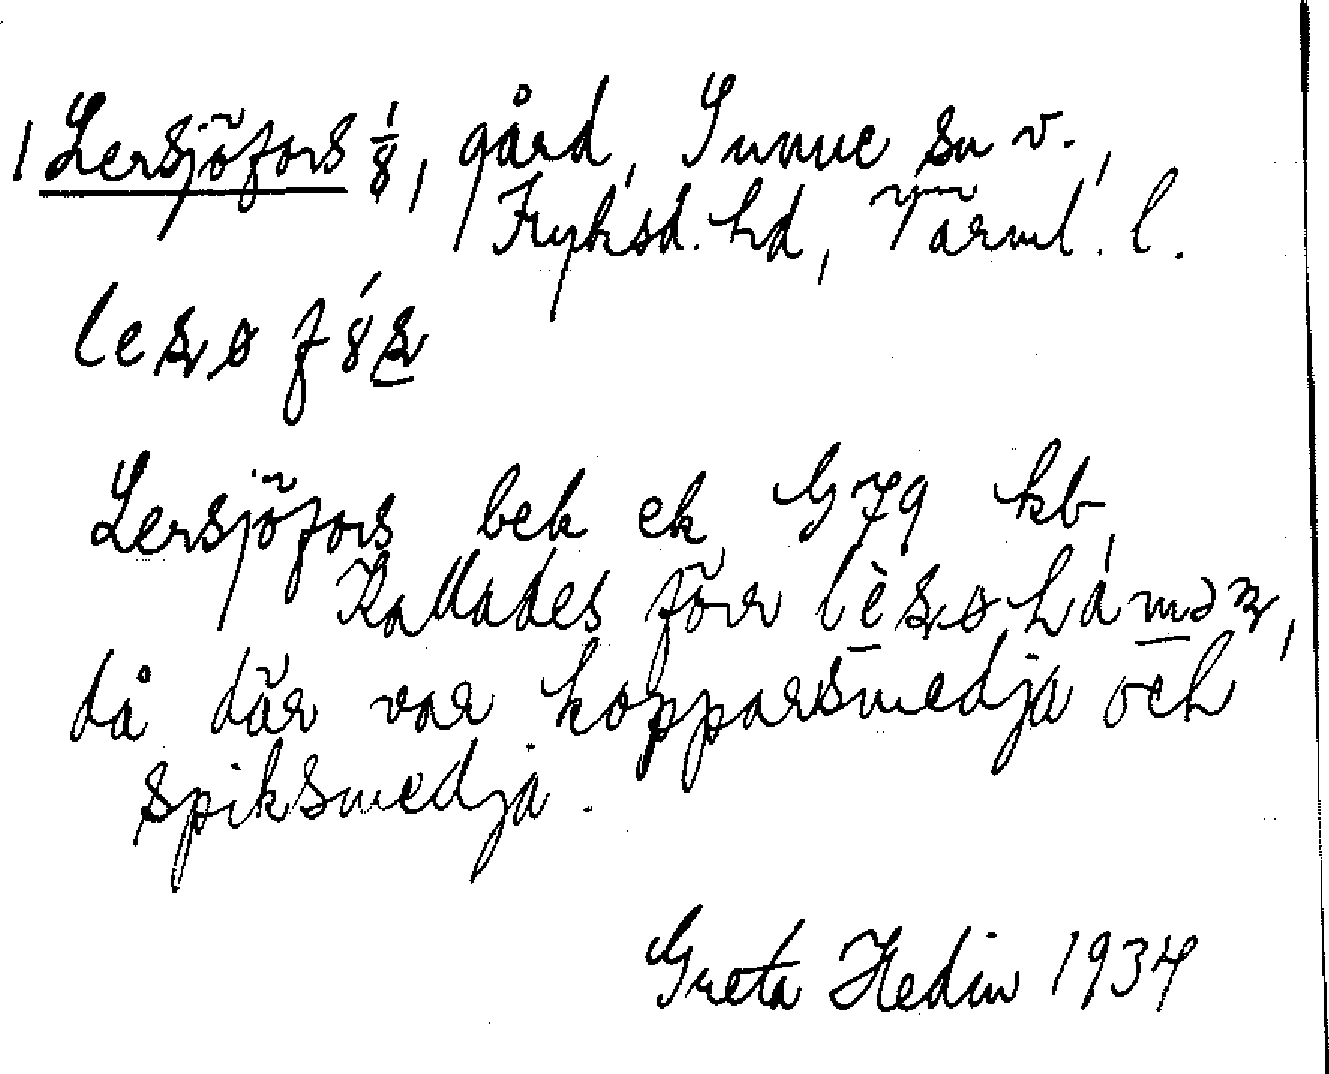 1 Lersjöfors 1/8, gård, Sunne sn v.,
Fryksd. hd, Värml. l.
Lersjöfors bek ek G79 kb
Kallades förr
då där var kopparsmedja och
spiksmedja.
Greta Hedin 1934